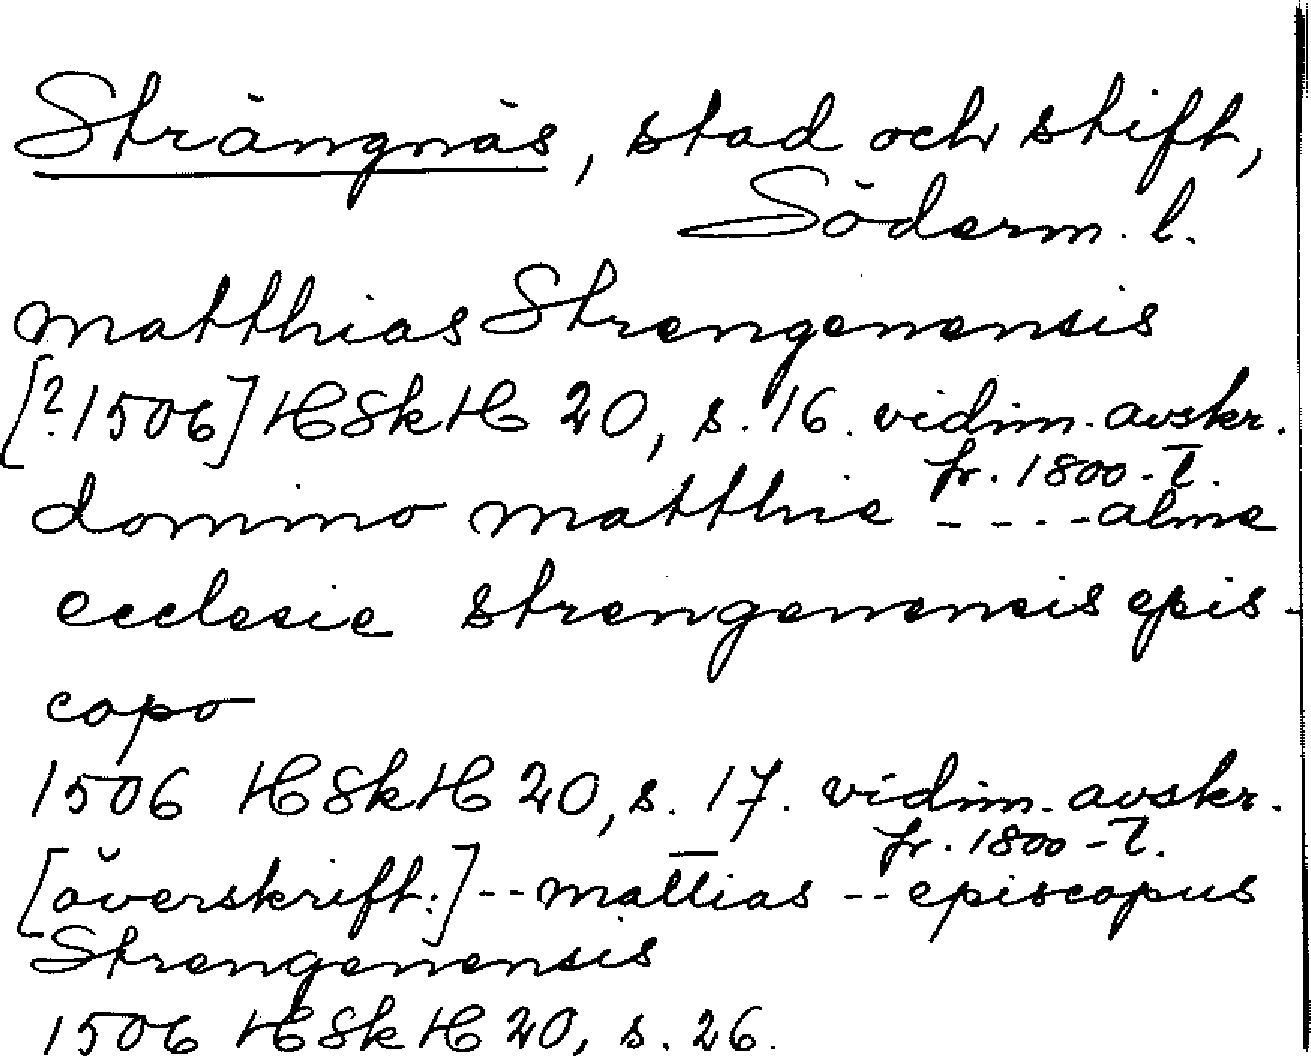 Strängnäs, stad och stift,
Söderm. l.
matthias Strengenensis
[? 1506] HSkH 20, s. 16. vidim. avskr.
fr. 1800-t.
domino matthie ---- alme
ecclesie strengenensis epis-
copo
1506 HSkH 20, s. 17. vidim. avskr.
fr. 1800-t.
[överskrift:] -- mattias -- episcopus
Strengenensis
1506 HSkH 20, s. 26.